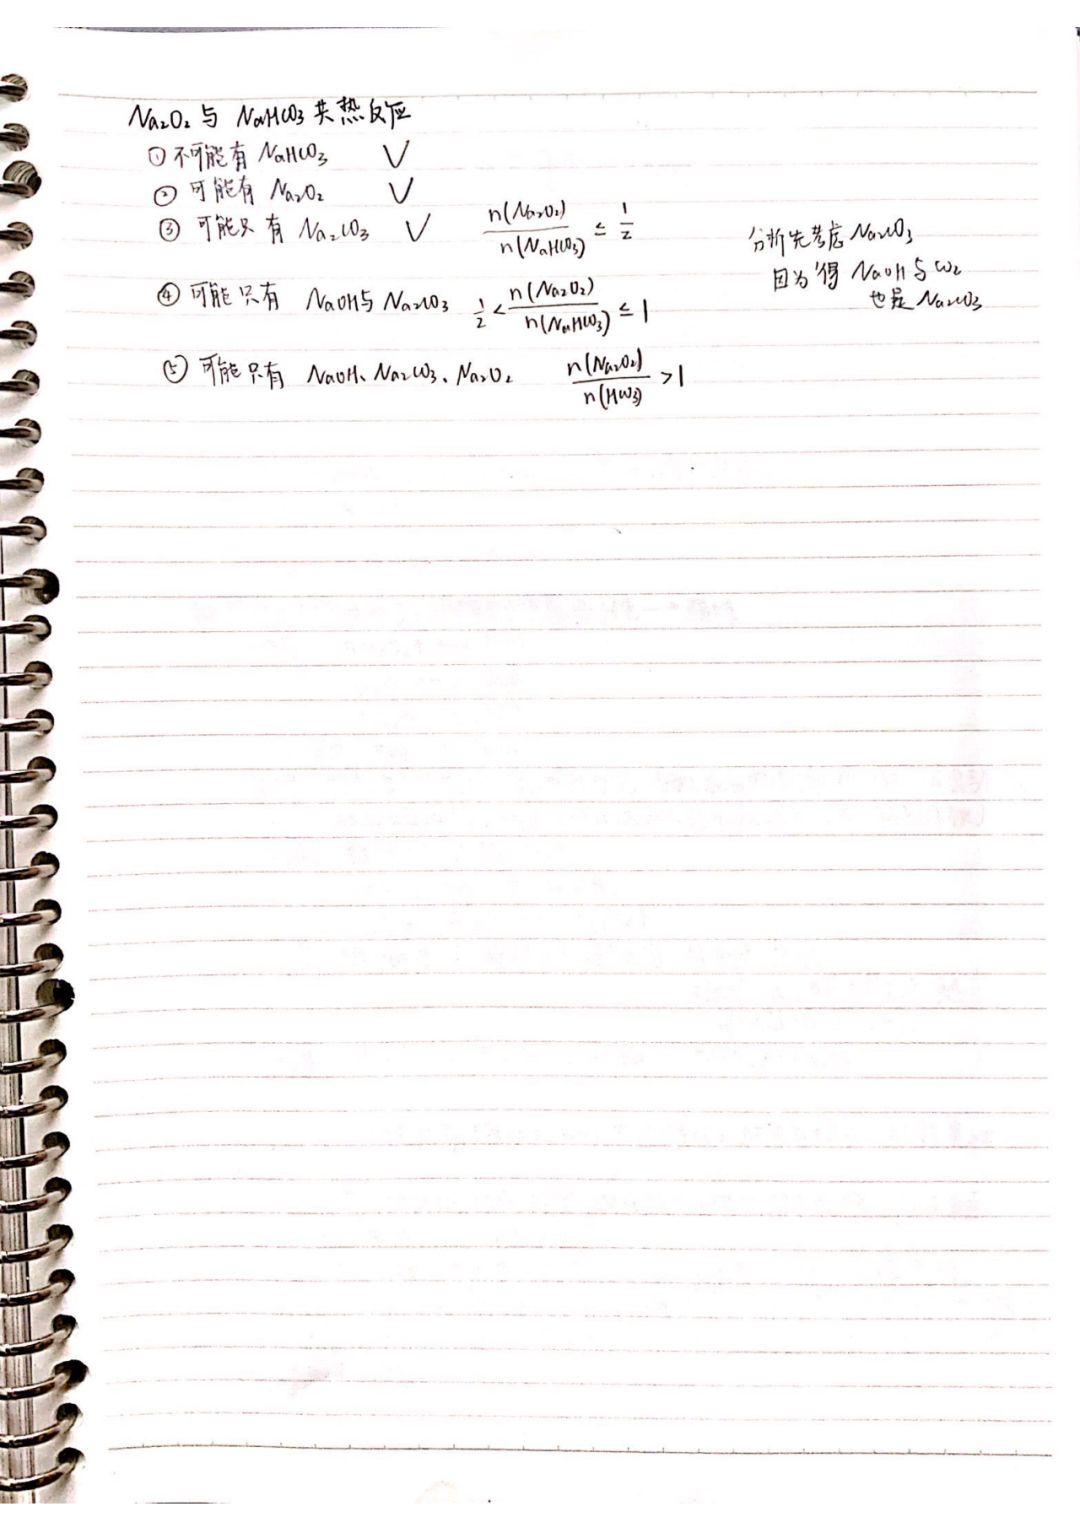 Na₂O₂与 NaHCO₃共热反应
①不可能有 NaHCO₃ √
②可能有 Na₂O₂ √
③可能只有 Na₂CO₃ √ n(Na₂O₂)/n(NaHCO₃) ≤ 1/2
④可能只有 NaOH与 Na₂CO₃ 1/2 < n(Na₂O₂)/n(NaHCO₃) ≤ 1
⑤可能只有 NaOH、Na₂CO₃、Na₂O₂ n(Na₂O₂)/n(HCO₃) >1
分析先考虑 Na₂CO₃
因为得 NaOH与 CO₂
也是 Na₂CO₃